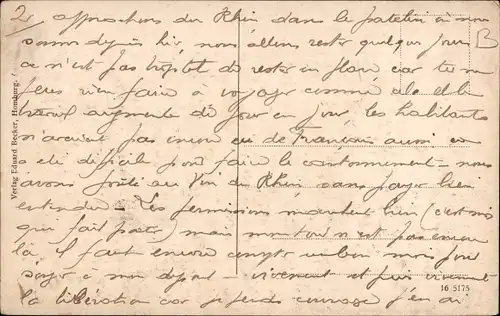 2) approchons du Rhin dans le patelin où nous
sommes depuis hier, nous allons rester quelques jours
ce n'est pas trop tôt de rester en place car tu ne
peux rien faire à voyager comme cela et le
travail augmente de jour en jour, les habitants
n'avaient pas encore eu de Français aussi
a été difficile pour faire le cantonnement - nous
avons goûté au Vin du Rhin sans payer bien
entendu - Les permissions marchent bien (c'est moi
qui fait partir) mais mon tour n'est pas encore
là il faut encore compter un bon mois pour
songer à mon départ - vivement et puis vivement
la libération car je perds courage j'en ai
B
Verlag Eduard Becker, Homburg.
16 5175